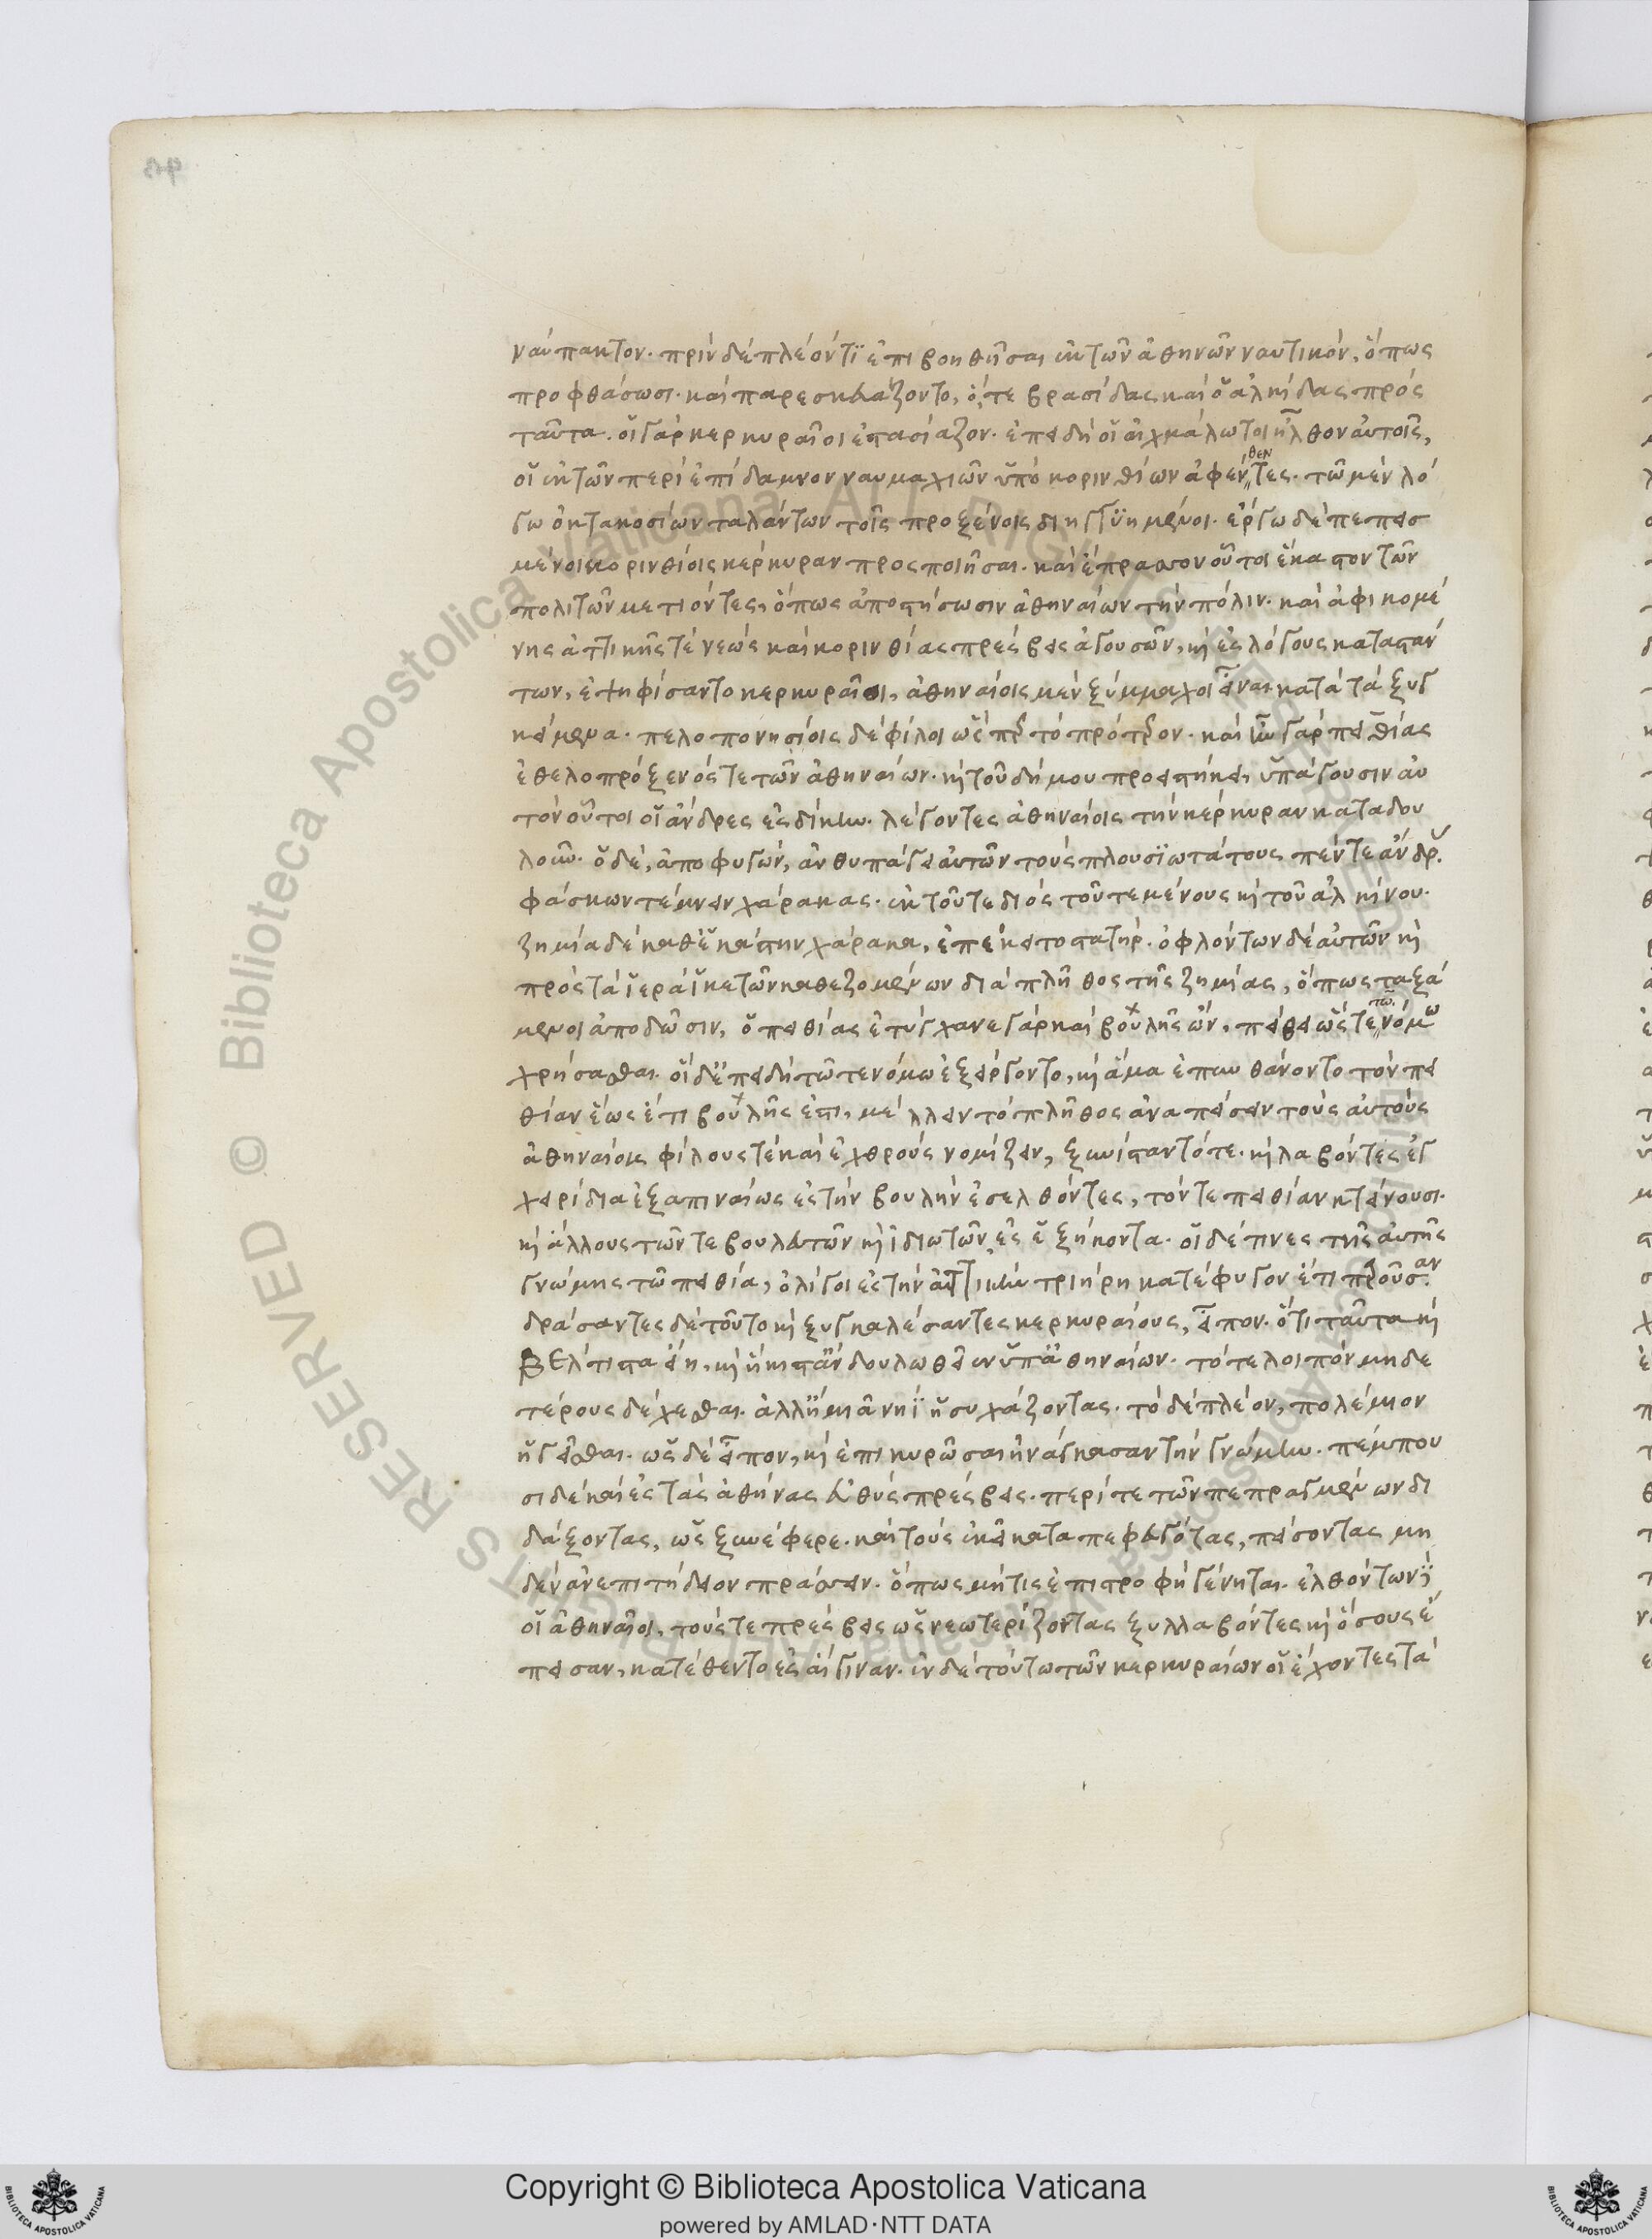 ναύπακτον. πρὶν δὲ πλέον τι ἐπιβοηθῆσαι ἐκ τῶν ἀθηνῶν ναυτικὸν, ὅπως
προφθάσωσι. καὶ παρεσκευάζοντο, ὅ τε βρασίδας καὶ ὁ ἀλκίδας πρὸς
ταῦτα. οἱ γὰρ κερκυραῖοι ἐστασίαζον. ἐπειδὴ οἱ αἰχμάλωτοι ἦλθον αὐτοῖς,
οἱ ἐκ τῶν περὶ ἐπίδαμνον ναυμαχιῶν ὑπὸ κορινθίων ἀφεθέντες. τῶ μὲν λό
γω ὀκτακοσίων ταλάντων τοῖς προξένοις διηγγυημένοι. ἔργω δὲ πεπεισ
μένοι κορινθίοις κέρκυραν προσποιῆσαι. καὶ ἔπρασσον οὗτοι ἕκαστον τῶν
πολιτῶν μετιόντες, ὅπως ἀποστήσωσιν ἀθηναίων τὴν πόλιν. καὶ ἀφικομέ
νης ἀττικῆς τε νεὼς καὶ κορινθίας πρέσβεις ἀγουσῶν, καὶ ἐς λόγους καταστάν
των, ἐψηφίσαντο κερκυραῖοι, ἀθηναίοις μὲν ξύμμαχοι εἶναι κατὰ τὰ ξυγ
κείμενα. πελοπονησίοις δὲ φίλοι ὥσπερ τὸ πρότερον. καὶ ἦν γὰρ πειθίας
ἐθελοπρόξενός τε τῶν ἀθηναίων. καὶ τοῦ δήμου προειστήκει, ὑπάγουσιν αὐ
τὸν οὗτοι οἱ ἄνδρες ἐς δίκην. λέγοντες ἀθηναίοις τὴν κέρκυραν καταδου
λοῦν. ὁ δὲ, ἀποφυγὼν, ἀνθυπάγει αὐτῶν τοὺς πλουσιωτάτους πέντε ἄνδρας.
φάσκων τέμνειν χάρακας. ἐκ τοῦ τε διὸς τοῦ τεμένους καὶ τοῦ ἀλκίνου.
ζημία δὲ καθ' ἑκάστην χάρακα, ἐπέκειτο στατήρ. ὀφλόντων δὲ αὐτῶν καὶ
πρὸς τὰ ἱερὰ ἱκετῶν καθεζομένων διὰ πλῆθος τῆς ζημίας, ὅπως ταξά
μενοι ἀποδῶσιν, ὁ πειθίας ἐτύγχανε γὰρ καὶ βουλῆς ὢν, πείθει ὥστε τῶ νόμω
χρήσασθαι. οἱ δ' ἐπειδὴ τῶ τε νόμω ἐξείργοντο, καὶ ἅμα ἐπυνθάνοντο τὸν πει
θίαν ἕως ἔτι βουλῆς ἐστι, μέλλειν τὸ πλῆθος ἀναπείσειν τοὺς αὐτοὺς
ἀθηναίοις φίλους τε καὶ ἐχθροὺς νομίζειν, ξυνίσταντό τε. καὶ λαβόντες ἐγ
χειρίδια ἐξαπιναίως ἐς τὴν βουλὴν ἐσελθόντες, τόν τε πειθίαν κτείνουσι.
καὶ ἄλλους τῶν τε βουλευτῶν καὶ ἰδιωτῶν ἐς ἑξήκοντα. οἱ δέ τινες τῆς αὐτῆς
γνώμης τῶ πειθία, ὀλίγοι ἐς τὴν ἀττικὴν τριήρη κατέφυγον ἔτι παροῦσαν.
δράσαντες δὲ τοῦτο καὶ ξυγκαλέσαντες κερκυραίους, εἶπον. ὅτι ταῦτα καὶ
βέλτιστα εἴη, καὶ ἥκιστ' ἂν δουλωθεῖεν ὑπ' ἀθηναίων. τό τε λοιπὸν μηδε
τέρους δέχεσθαι. ἀλλ' ἢ μιᾶ νηῒ ἡσυχάζοντας. τὸ δὲ πλέον, πολέμιον
ἡγεῖσθαι. ὡς δὲ εἶπον, καὶ ἐπικυρῶσαι ἠνάγκασαν τὴν γνώμην. πέμπου
σι δὲ καὶ ἐς τὰς ἀθήνας εὐθὺς πρέσβεις. περί τε τῶν πεπραγμένων δι
δάξοντας, ὡς ξυνέφερε. καὶ τοὺς ἐκεῖ καταπεφευγότας, πείσοντας μη
δὲν ἀνεπιτήδειον πράσσειν. ὅπως μή τις ἐπιστροφὴ γένηται. ἐλθόντων δὲ
οἱ ἀθηναῖοι, τούς τε πρέσβεις ὡς νεωτερίζοντας ξυλλαβόντες καὶ ὅσους ἔ
πεισαν, κατέθεντο ἐς αἴγιναν. ἐν δὲ τούτω τῶν κερκυραίων οἱ ἔχοντες τὰ
© Biblioteca Apostolica Vaticana ALL RIGHTS RESERVED
Copyright © Biblioteca Apostolica Vaticana
powered by AMLAD·NTT DATA
BIBLIOTECA APOSTOLICA VATICANA
BIBLIOTECA APOSTOLICA VATICANA